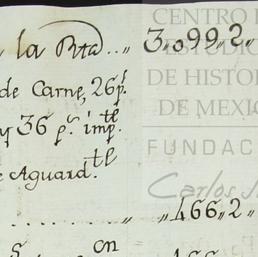 la Rta... " 3„099„2„
de Carne, 26 ps.
36 ps. imptl.
Aguard.tl
........ " „466„2„
on
CENTRO
DE HISTOR
DE MEXIC
FUNDAC
Carlos